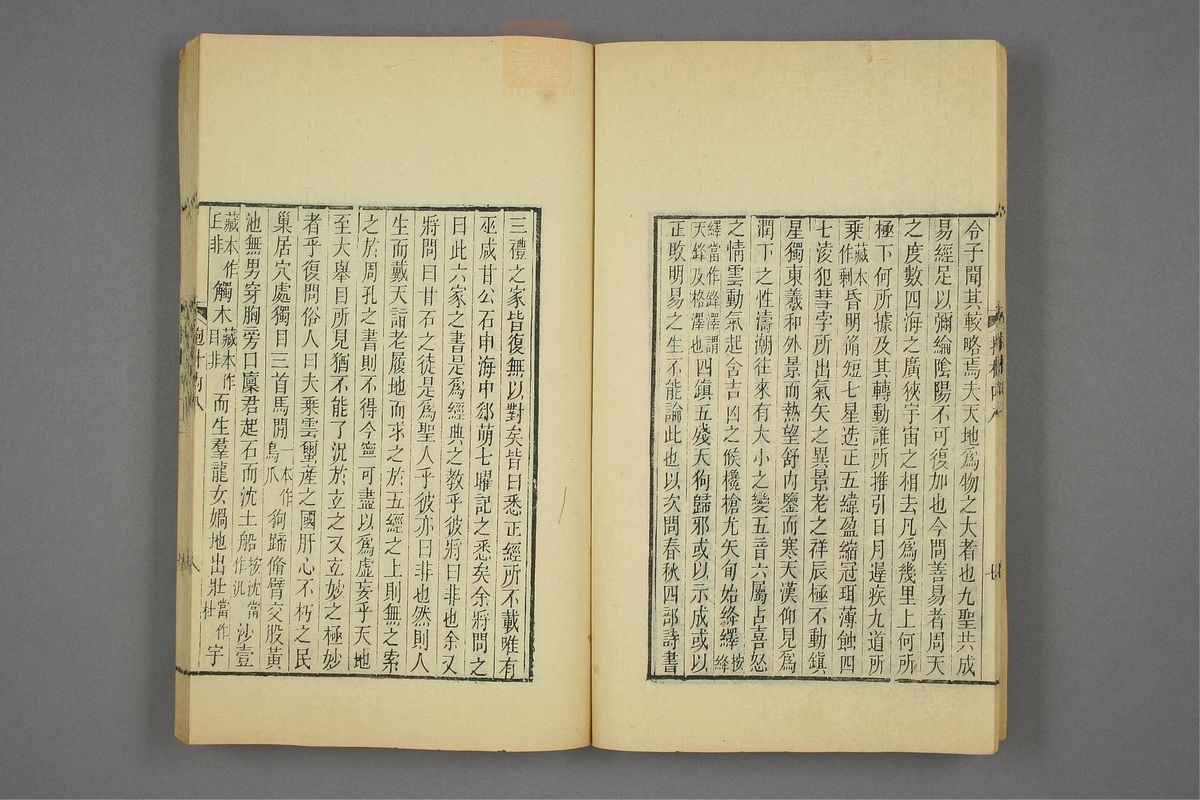 令子聞其較略焉夫天地爲物之大者也九聖共成
易經足以彌綸陰陽不可復加也今問善易者周天
之度數四海之廣狹宇宙之相去凡爲幾里上何所
極下何所據及其轉動誰所推引日月遲疾九道所
乘藏本作剰昏明脩短七星迭正五緯盈縮冠珥薄蝕四
七淩犯彗孛所出氣矢之異景老之祥辰極不動鎮
星獨東羲和外景而熱望舒内鑒而寒天漢仰見爲
潤下之性濤潮往來有大小之變五音六屬占喜怒
之情雲動氣起含吉凶之候欃槍尤矢旬始絳繹按絳
繹當作鋒澤謂天鋒及格澤也四鎮五殘天狗歸邪或以示成或以
正敗明易之生不能論此也以次問春秋四部詩書
三禮之家皆復無以對矣皆曰悉正經所不載唯有
巫咸甘公石申海中郄萌七曜記之悉矣余將問之
曰此六家之書是爲經典之教乎彼將曰非也余又
將問曰甘石之徒是爲聖人乎彼亦曰非也然則人
生而戴天詣老履地而求之於五經之上則無之索
之於周孔之書則不得今寧可盡以爲虚妄乎天地
至大舉目所見猶不能了況於玄之又玄妙之極妙
者乎復問俗人曰夫乘雲璽產之國肝心不朽之民
巢居穴處獨目三首馬閒一本作鳥爪狗蹄脩臂交股黃
池無男穿胸旁口廩君起石而沈土船按沈當作汎沙壹
藏本作丘非觸木藏本作目非而生羣龍女媧地出壯當作杜宇